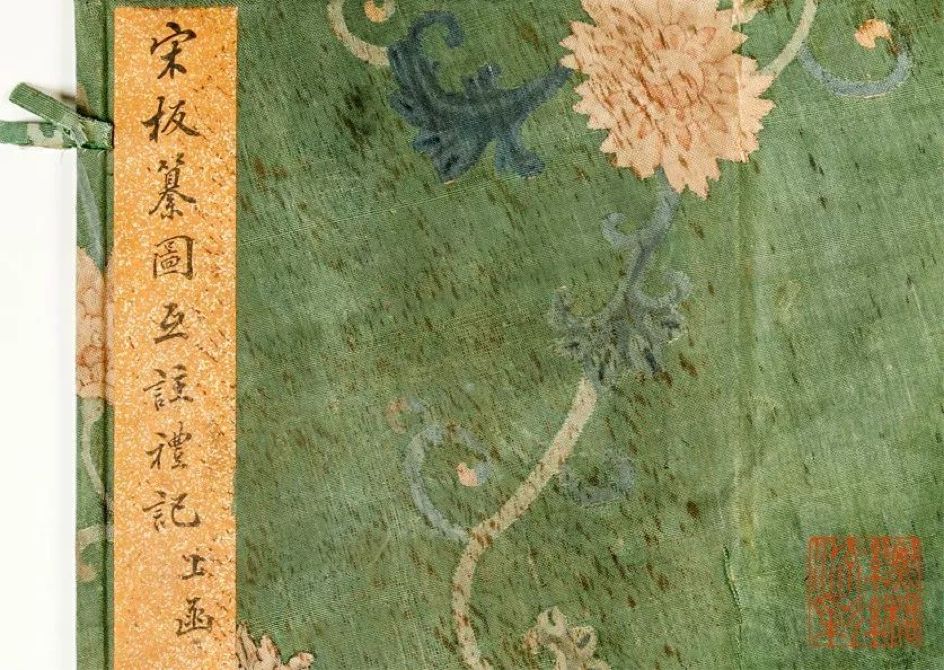 宋板纂圖互註禮記
上函